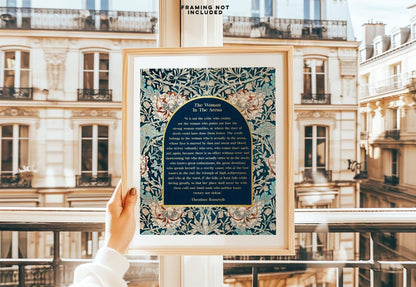 FRAMING NOT
INCLUDED
The Woman
In The Arena
"It is not the critic who counts;
not the woman who points out how the
strong woman stumbles, or where the doer of
deeds could have done them better. The credit
belongs to the woman who is actually in the arena,
whose face is marred by dust and sweat and blood;
who strives valiantly; who errs, who comes short again
and again, because there is no effort without error and
shortcoming; but who does actually strive to do the deeds;
who knows great enthusiasms, the great devotions;
who spends herself in a worthy cause; who at the best
knows in the end the triumph of high achievement,
and who at the worst, if she fails, at least fails while
daring greatly, so that her place shall never be with
those cold and timid souls who neither know
victory nor defeat."
-Theodore Roosevelt